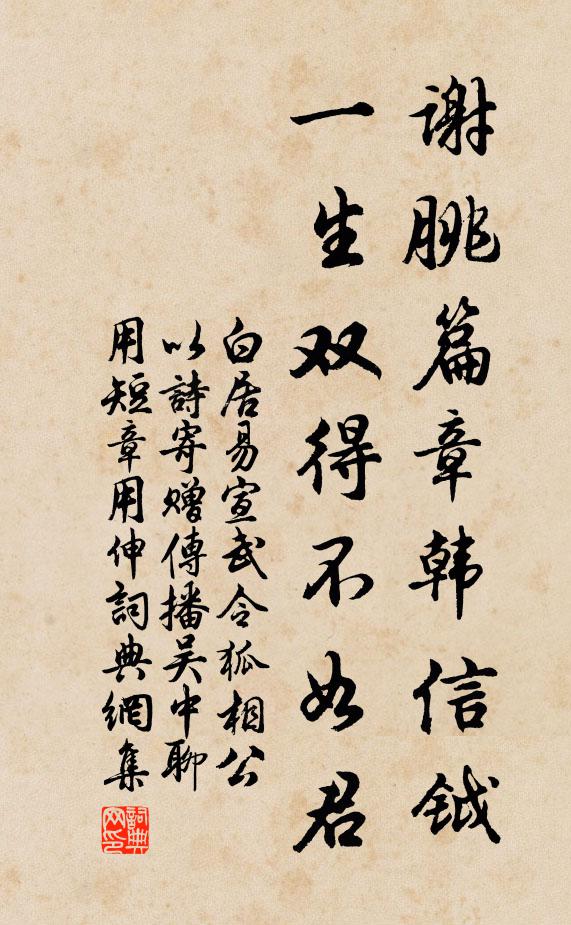 谢脁篇章韩信钺
一生双得不如君
白居易宣武令狐相公
以詩寄赠傳播吴中聊
用短章用伸詞典網集
詞典网印